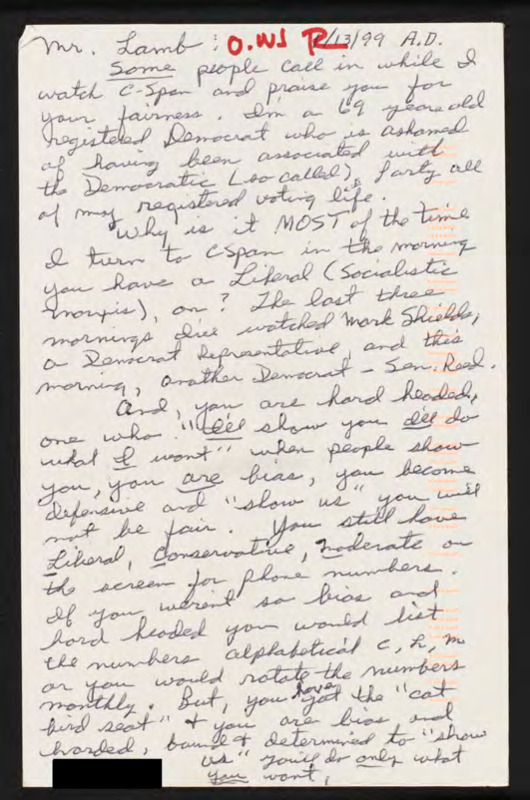 Mr. Lamb: O.W1 R 2/13/99 A.D.
Some people call in while I
watch C-Span and praise you for
your fairness. I'm a 69 years old
registered Democrat who is ashamed
of having been associated with
the Democratic (so called), Party all
of my registered voting life.
Why is it MOST of the time
I turn to C-Span in the morning
you have a Liberal (Socialistic
marxis), on? The last three
mornings I've watched Mark Shields,
a Democrat Representative, and this
morning, another Democrat - Sen. Reed.
And, you are hard headed,
one who "I'll show you I'll do
what I want" when people show
you, you are bias, you become
defensive and "show us" you will
not be fair. You still have
Liberal, Conservative, Moderate on
the screen for phone numbers.
If you weren't so bias and
hard headed you would list
the numbers alphabetical C, L, M
or you would rotate the numbers
monthly. But, you have got the "cat
bird seat" & you are bias and
harded, bound & determined to "show
us" you'll do only what
you want,